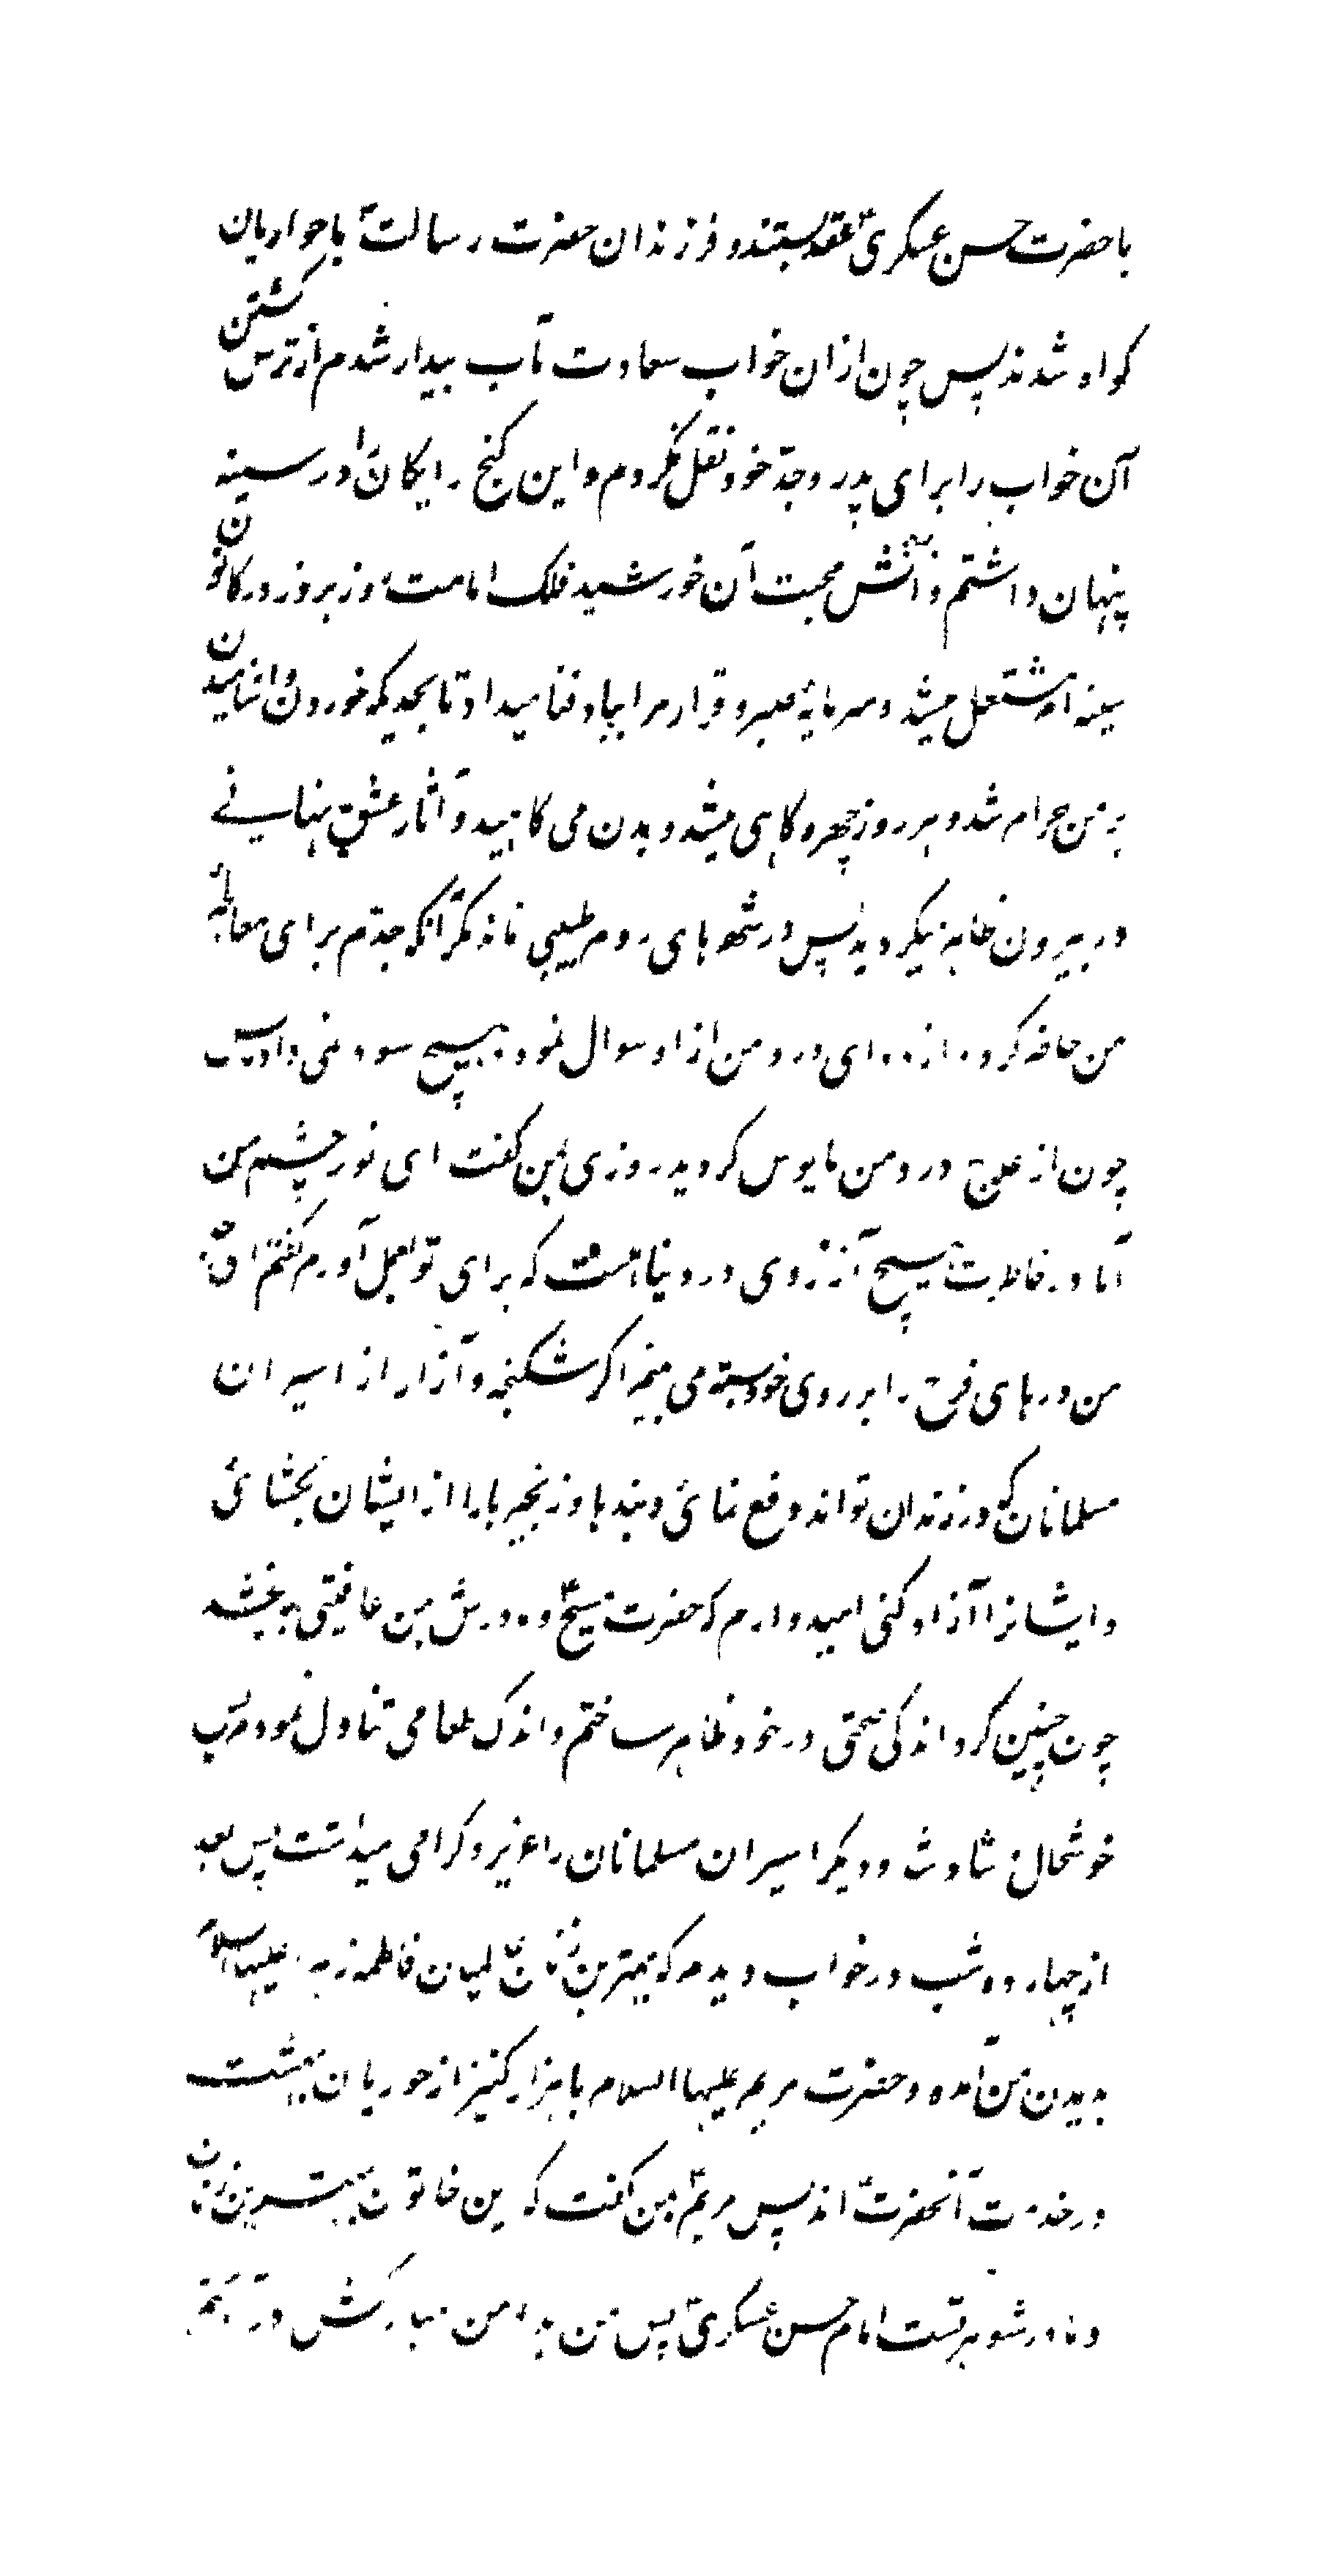 با حضرت حسن عسکری ع عقد بستند و فرزندان حضرت رسالت ص با حواریان
کواه شدند پس چون ازان خواب سعادت مآب بیدار شدم از ترس کشتن
آن خواب را برای پدر و جدّ خود نقل نکردم و این کنج رایکان را در سینه
پنهان داشتم و آتش محبت آن خورشید فلک امامت روز بروز در کانون
سینه ام مشتعل میشد و سرمایۀ صبر و قرار مرا بباد فنا میداد تا بحدیکه خوردن و اشامیدن
بر من حرام شد و هر روز چهره کاهی میشد و بدن می کاهید و آثار عشق پنهانی
در بیرون ظاهر میکردید پس در شهرهای روم طبیبی نماند مکر آنکه جدّم برای معالجۀ
من حاضر کرد و از دوای درد من ازو سوال نمود و هیچ سود نمی داد پس
چون از علاج درد من مایوس کردید روزی بمن کفت ای نور چشم من
آیا در خاطرت هیچ آرزوی در دنیا هست که برای تو بعمل آورم کفتم ای جدّ
من درهای فرج را بر روی خود بسته می بینم اکر شکنجه و آزار از اسیران
مسلمانان که در زندان تواند دفع نمائی و بندها و زنجیرها را از ایشان بخشائی
و ایشانرا آزاد کنی امیدوارم که حضرت مسیح ع و مادرش بمن عافیتی بخشد
چون چنین کرد اندکی صحتی در خود ظاهر ساختم و اندک طعامی تناول نمودم پس
خوشحال و شاد شد و دیکر اسیران مسلمانان را عزیز و کرامی میداشت پس بعد
از چهارده شب در خواب دیدم که بهترین زنان عالمیان فاطمه زهرا علیها السلام
بدیدن من آمده و حضرت مریم علیها السلام با هزار کنیز از حوریان بهشت
در خدمت آنحضرت اند پس مریم ع بمن کفت که این خاتون بهترین زنان
و مادر شوهر تست امام حسن عسکری ع پس من بدامن مبارکش در